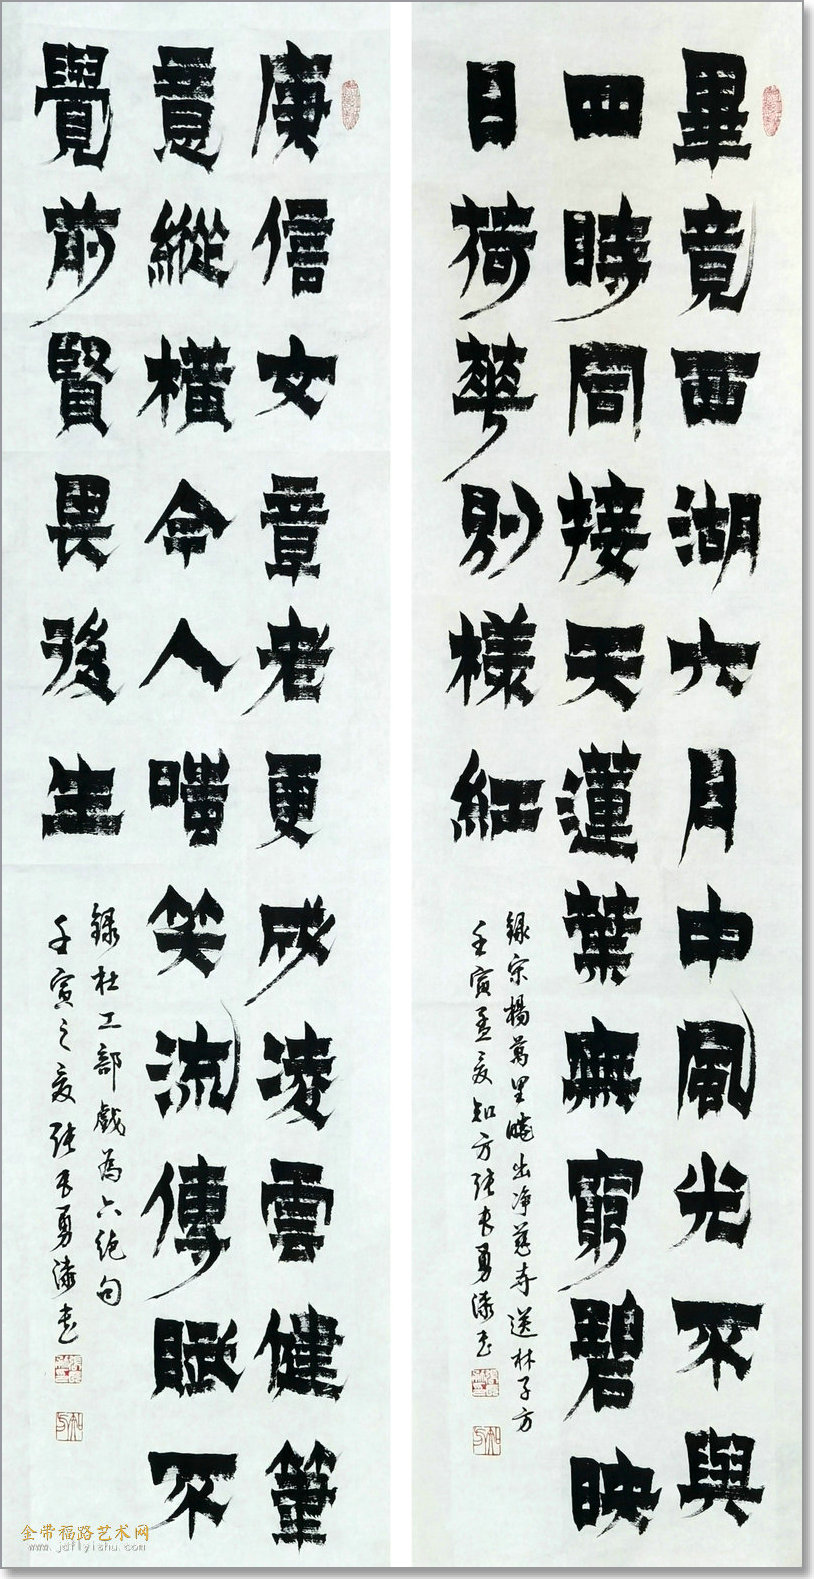 畢竟西湖六月中風光不與
四時同接天蓮葉無窮碧映
日荷華別樣紅
録宋楊萬里曉出净慈寺送林子方
壬寅孟夏知方張長勇漆書
庾信文章老更成凌雲健筆
意縱橫今人嗤笑流傳賦不
覺前賢畏後生
録杜工部戲為六絶句
壬寅之夏張長勇漆書
金带福路艺术网
www.jdflyishu.com